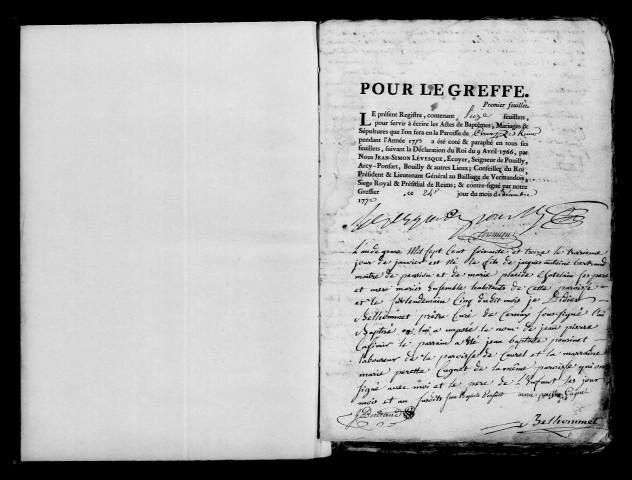 POUR LE GREFFE.
Premier feuillet.
LE présent Registre, contenant seize feuillets,
pour servir à écrire les Actes de Baptêmes, Mariages &
Sépultures que l'on fera en la Paroisse de Cernay les Reims
pendant l'Année 1773 a été coté & paraphé en tous ses
feuillets, suivant la Déclaration du Roi du 9 Avril 1766, par
Nous JEAN-SIMON LÉVESQUE, Ecuyer, Seigneur de Pouilly,
Arcy-Ponsart, Bouilly & autres Lieux; Conseiller du Roi
Président & Lieutenant Général au Bailliage de Vermandois,
Siege Royal & Présidial de Reims; & contre-signé par notre
Greffier ce 24e jour du mois de décembre
177
Levesque de pouilly
L'an de grace Mil sept Cent soixante et treize le troisieme
jour de janvier est né le fils de jacques antoine bertrand
maître de pension et de marie placide Chatelain ses pere
et mere mariés Ensemble habitants de cette paroisse
et le surlendemain Cinq dudit mois je Didier
Belhommet prêtre Curé de Cernay soussigné l'ai
Baptisé et lui a imposé le nom de jean pierre
Casimir le parrain a été jean baptiste ponsinet
laboureur de la paroisse de Caurel et la marraine
marie perette Cuguet de la même paroisse qui ont
signé avec moi et le pere de l'Enfant les jour
mois et an susdits jean Baptiste Ponsinet marie perette Cuguet
J Bertrand
Belhommet